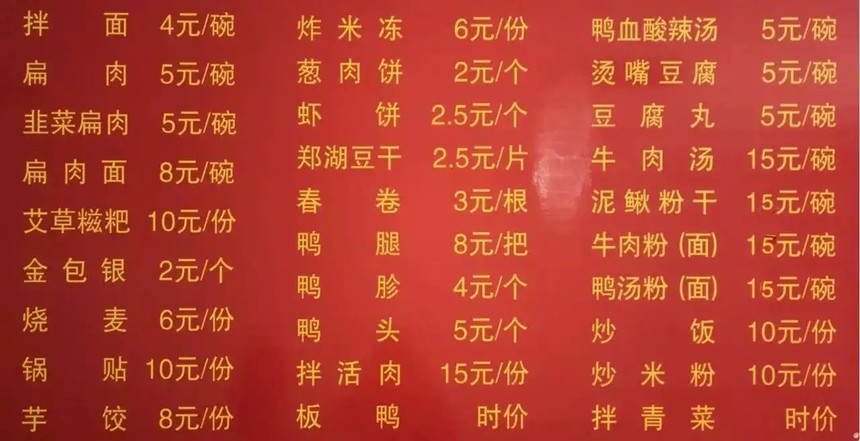 拌面 4元/碗
扁肉 5元/碗
韭菜扁肉 5元/碗
扁肉面 8元/碗
艾草糍粑 10元/份
金包银 2元/个
烧麦 6元/份
锅贴 10元/份
芋饺 8元/份
炸米冻 6元/份
葱肉饼 2元/个
虾饼 2.5元/个
郑湖豆干 2.5元/片
春卷 3元/根
鸭腿 8元/把
鸭胗 4元/个
鸭头 5元/个
拌活肉 15元/份
板鸭 时价
鸭血酸辣汤 5元/碗
烫嘴豆腐 5元/碗
豆腐丸 5元/碗
牛肉汤 15元/碗
泥鳅粉干 15元/碗
牛肉粉(面) 15元/碗
鸭汤粉(面) 15元/碗
炒饭 10元/份
炒米粉 10元/份
拌青菜 时价